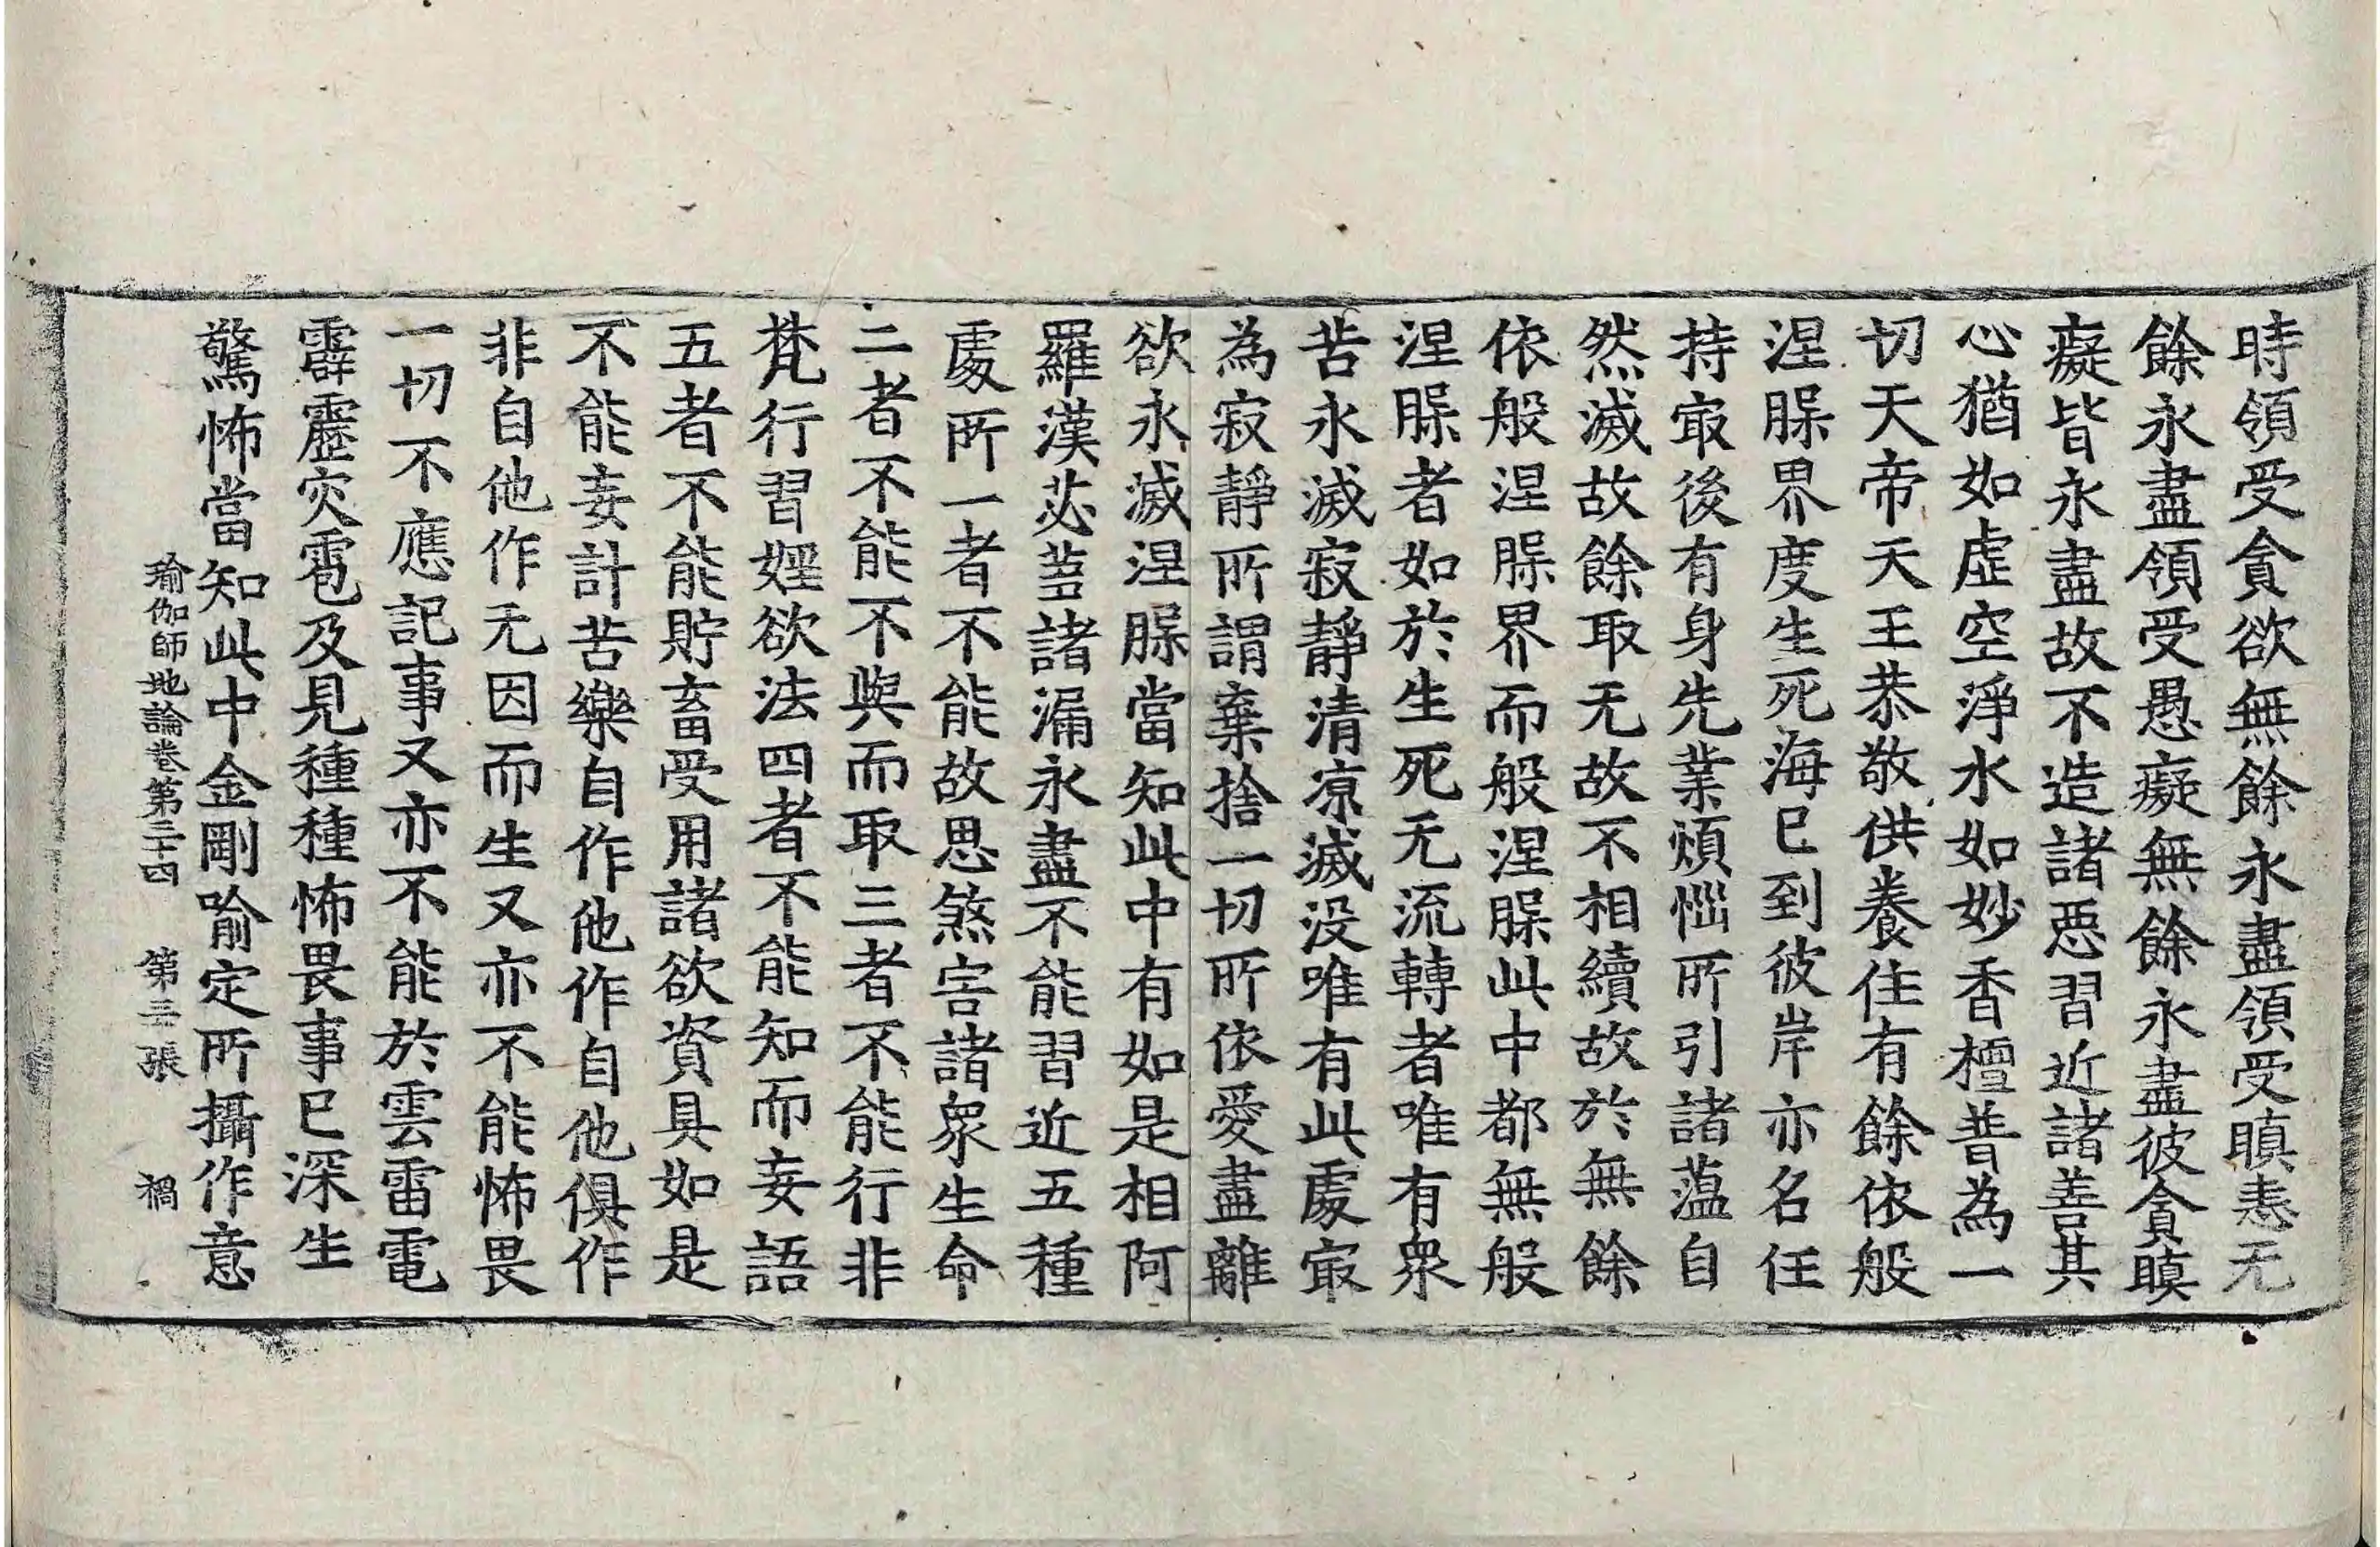 時領受貪欲無餘永盡領受瞋恚无
餘永盡領受愚癡無餘永盡彼貪瞋
癡皆永盡故不造諸惡習近諸善其
心猶如虛空淨水如妙香檀普為一
切天帝天王恭敬供養住有餘依般
涅槃界度生死海已到彼岸亦名任
持㝡後有身先業煩惱所引諸蕰自
然滅故餘取无故不相續故於無餘
依般涅槃界而般涅槃此中都無般
涅槃者如於生死无流轉者唯有衆
苦永滅寂靜清凉滅沒唯有此處㝡
為寂靜所謂棄捨一切所依愛盡離
欲永滅涅槃當知此中有如是相阿
羅漢苾蒭諸漏永盡不能習近五種
處所一者不能故思煞害諸衆生命
二者不能不與而取三者不能行非
梵行習婬欲法四者不能知而妄語
五者不能貯畜受用諸欲資具如是
不能妄計苦樂自作他作自他俱作
非自他作无因而生又亦不能怖畏
一切不應記事又亦不能於雲雷電
霹靂灾雹及見種種怖畏事已深生
驚怖當知此中金剛喻定所攝作意
瑜伽師地論卷第三十四 第三張 禍